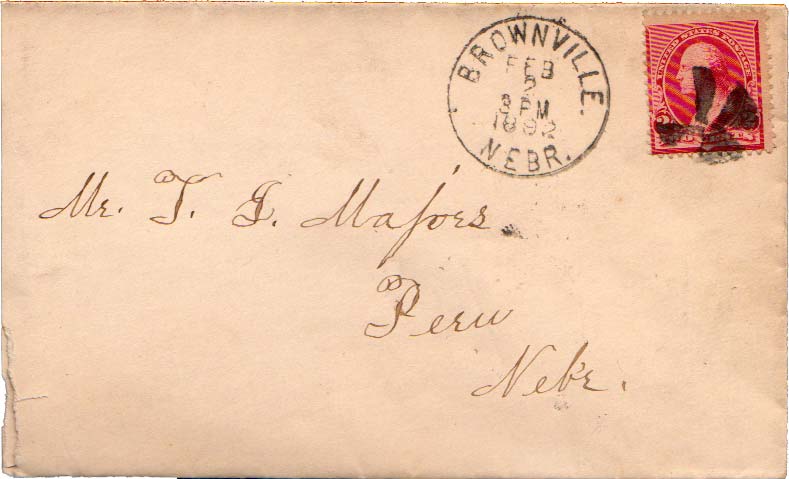 BROWNVILLE.
FEB
2
3 PM
1892
NEBR.
UNITED STATES POSTAGE
Mr. T. J. Majors
Peru
Nebr.